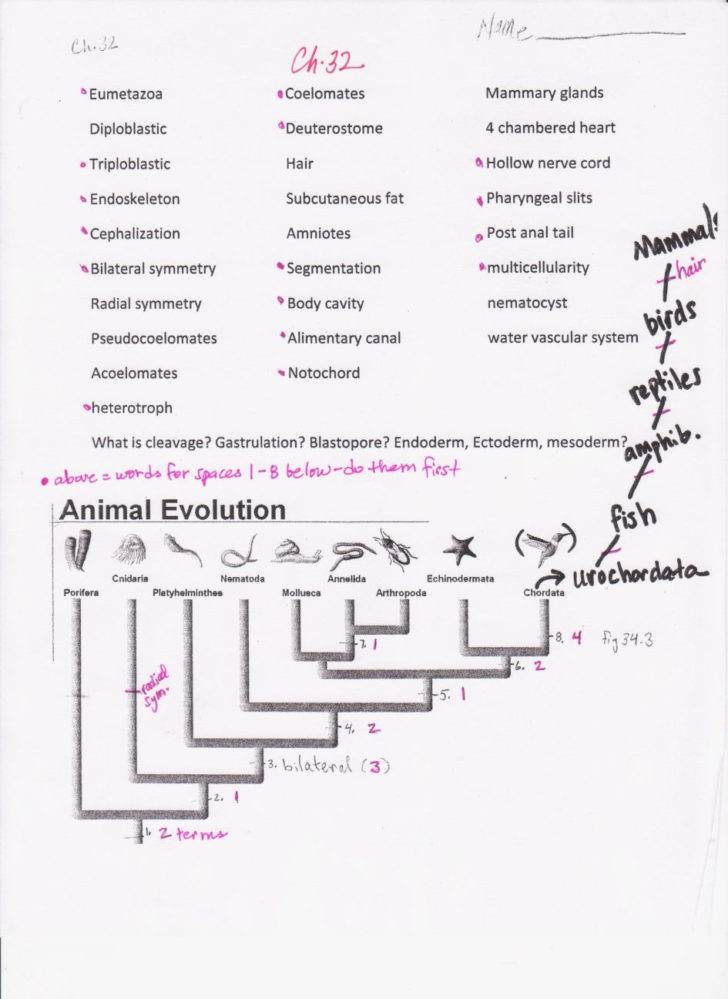 Ch.32
Name
Ch.32
Eumetazoa
Diploblastic
Triploblastic
Endoskeleton
Cephalization
Bilateral symmetry
Radial symmetry
Pseudocoelomates
Acoelomates
heterotroph
Coelomates
Deuterostome
Hair
Subcutaneous fat
Amniotes
Segmentation
Body cavity
Alimentary canal
Notochord
Mammary glands
4 chambered heart
Hollow nerve cord
Pharyngeal slits
Post anal tail
multicellularity
nematocyst
water vascular system
What is cleavage? Gastrulation? Blastopore? Endoderm, Ectoderm, mesoderm?
• above = words for spaces 1-8 below - do them first
Mammals
hair
birds
reptiles
amphib.
fish
urochordata
Animal Evolution
Cnidaria Nematoda Annelida Echinodermata
Porifera Platyhelminthes Mollusca Arthropoda Chordata
8. 4 fig 34.3
7. 1
6. 2
radial
sym.
5. 1
4. 2
3. bilateral (3)
2. 1
1. 2 terms